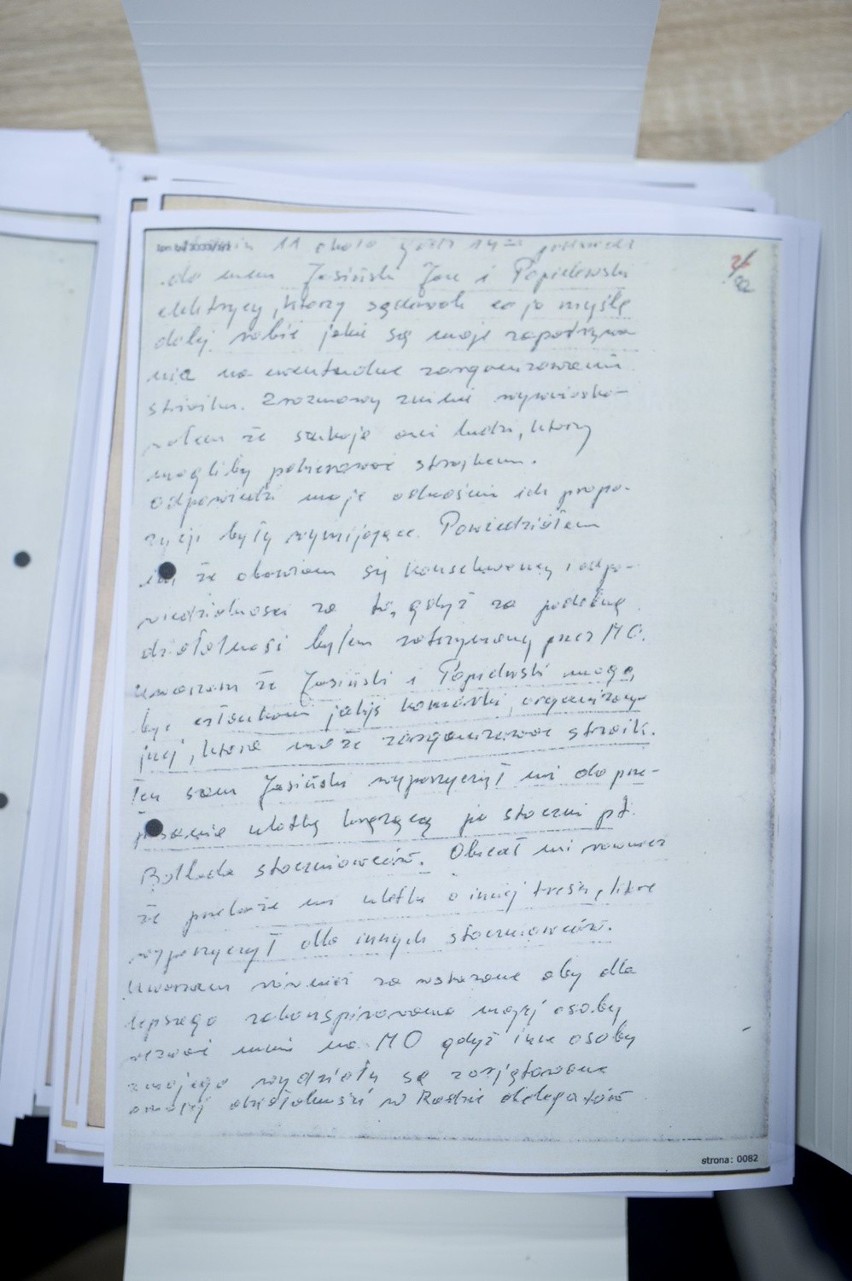 11 około godz 14
do mnie Jasiński Jan i Popielewski
elektrycy, którzy co ja myślę
dalej robić jakie są moje zapatrywa
nia na ewentualne zorganizowanie
strajku. Z rozmowy z nimi wywniosko-
wałem że szukają oni ludzi, którzy
mogliby pokierować strajkiem.
Odpowiedzi moje odnośnie ich propo-
zycji były wymijające. Powiedziałem
im że obawiam się konsekwencji i odpo-
wiedzialności za to, gdyż za podobną
działalność byłem zatrzymany przez MO.
Uważam że Jasiński i Popielewski mogą
być członkami jakiejś komórki organizacy-
jnej, która może zorganizować strajk.
Ten sam Jasiński wypożyczył mi do prze-
pisania ulotkę krążącą po stoczni pt.
Ballada stoczniowców. Obiecał mi również
że przekaże mi ulotki o innej treści, które
wypożyczył dla innych stoczniowców.
Uważam również za wskazane aby dla
lepszego zakonspirowania mojej osoby
wezwać mnie na MO gdyż inne osoby
z mojego wydziału są
o mojej działalności w Radzie delegatów
82
strona: 0082